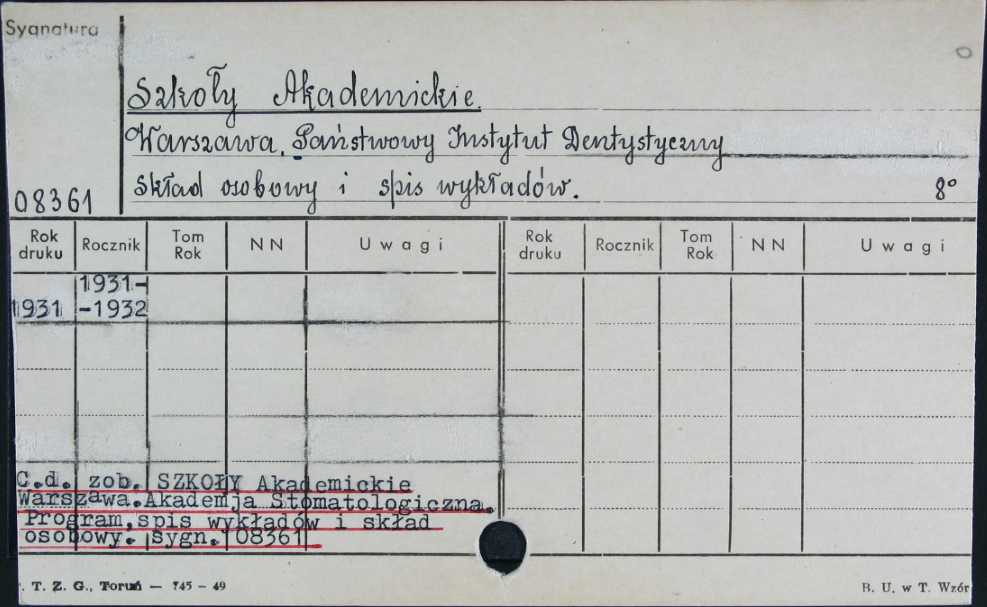 Sygnatura
Szkoły Akademickie.
Warszawa. Państwowy Instytut Dentystyczny
skład osobowy i spis wykładów. 8°
08361
Rok druku Rocznik Tom Rok NN Uwagi Rok druku Rocznik Tom Rok NN Uwagi
1931-
1931 -1932
C.d. zob. SZKOŁY Akademickie
Warszawa.Akademja Stomatologiczna.
Program,spis wykładów i skład
osobowy. sygn. 08361
. T. Z. G., Toruń — 745 - 49 B. U. w T. Wzór